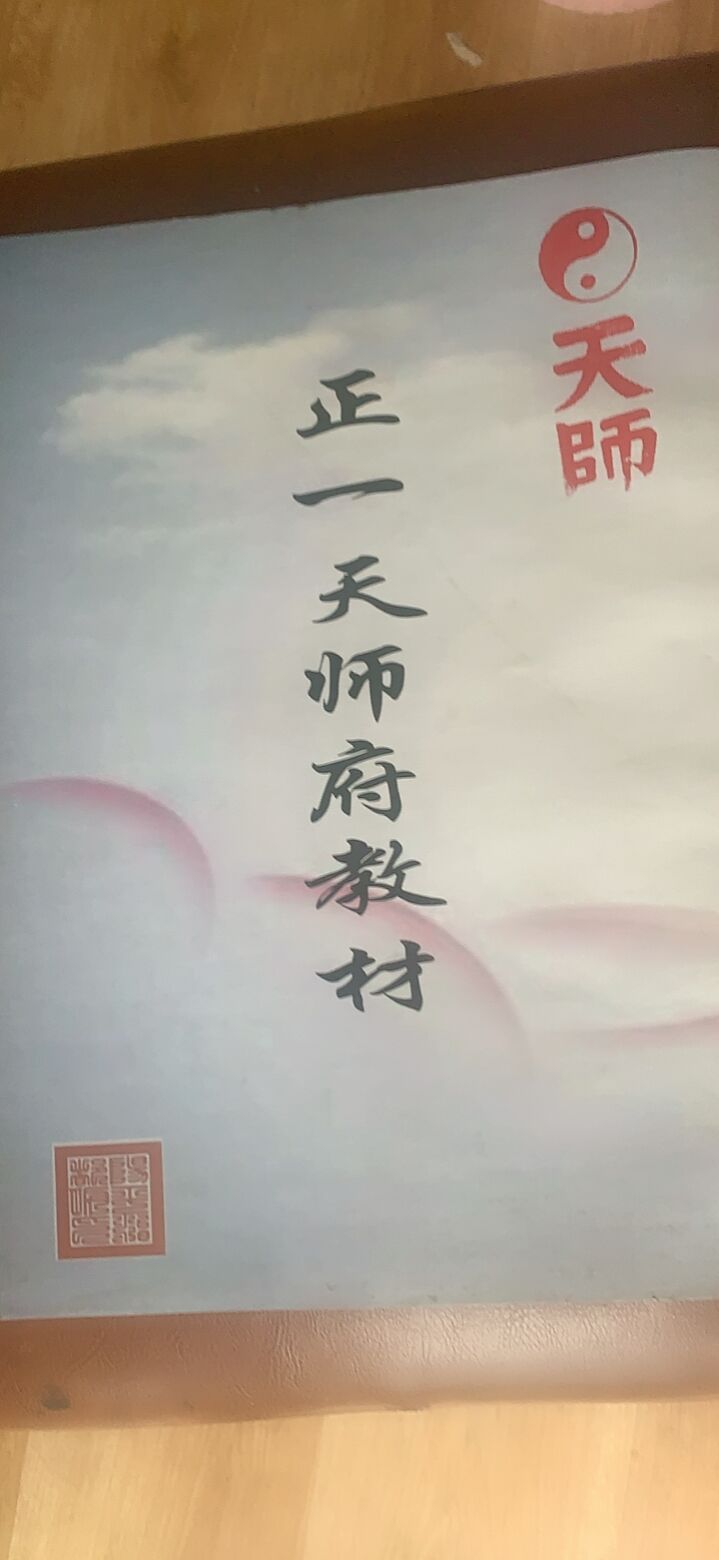 天師
正一天师府教材